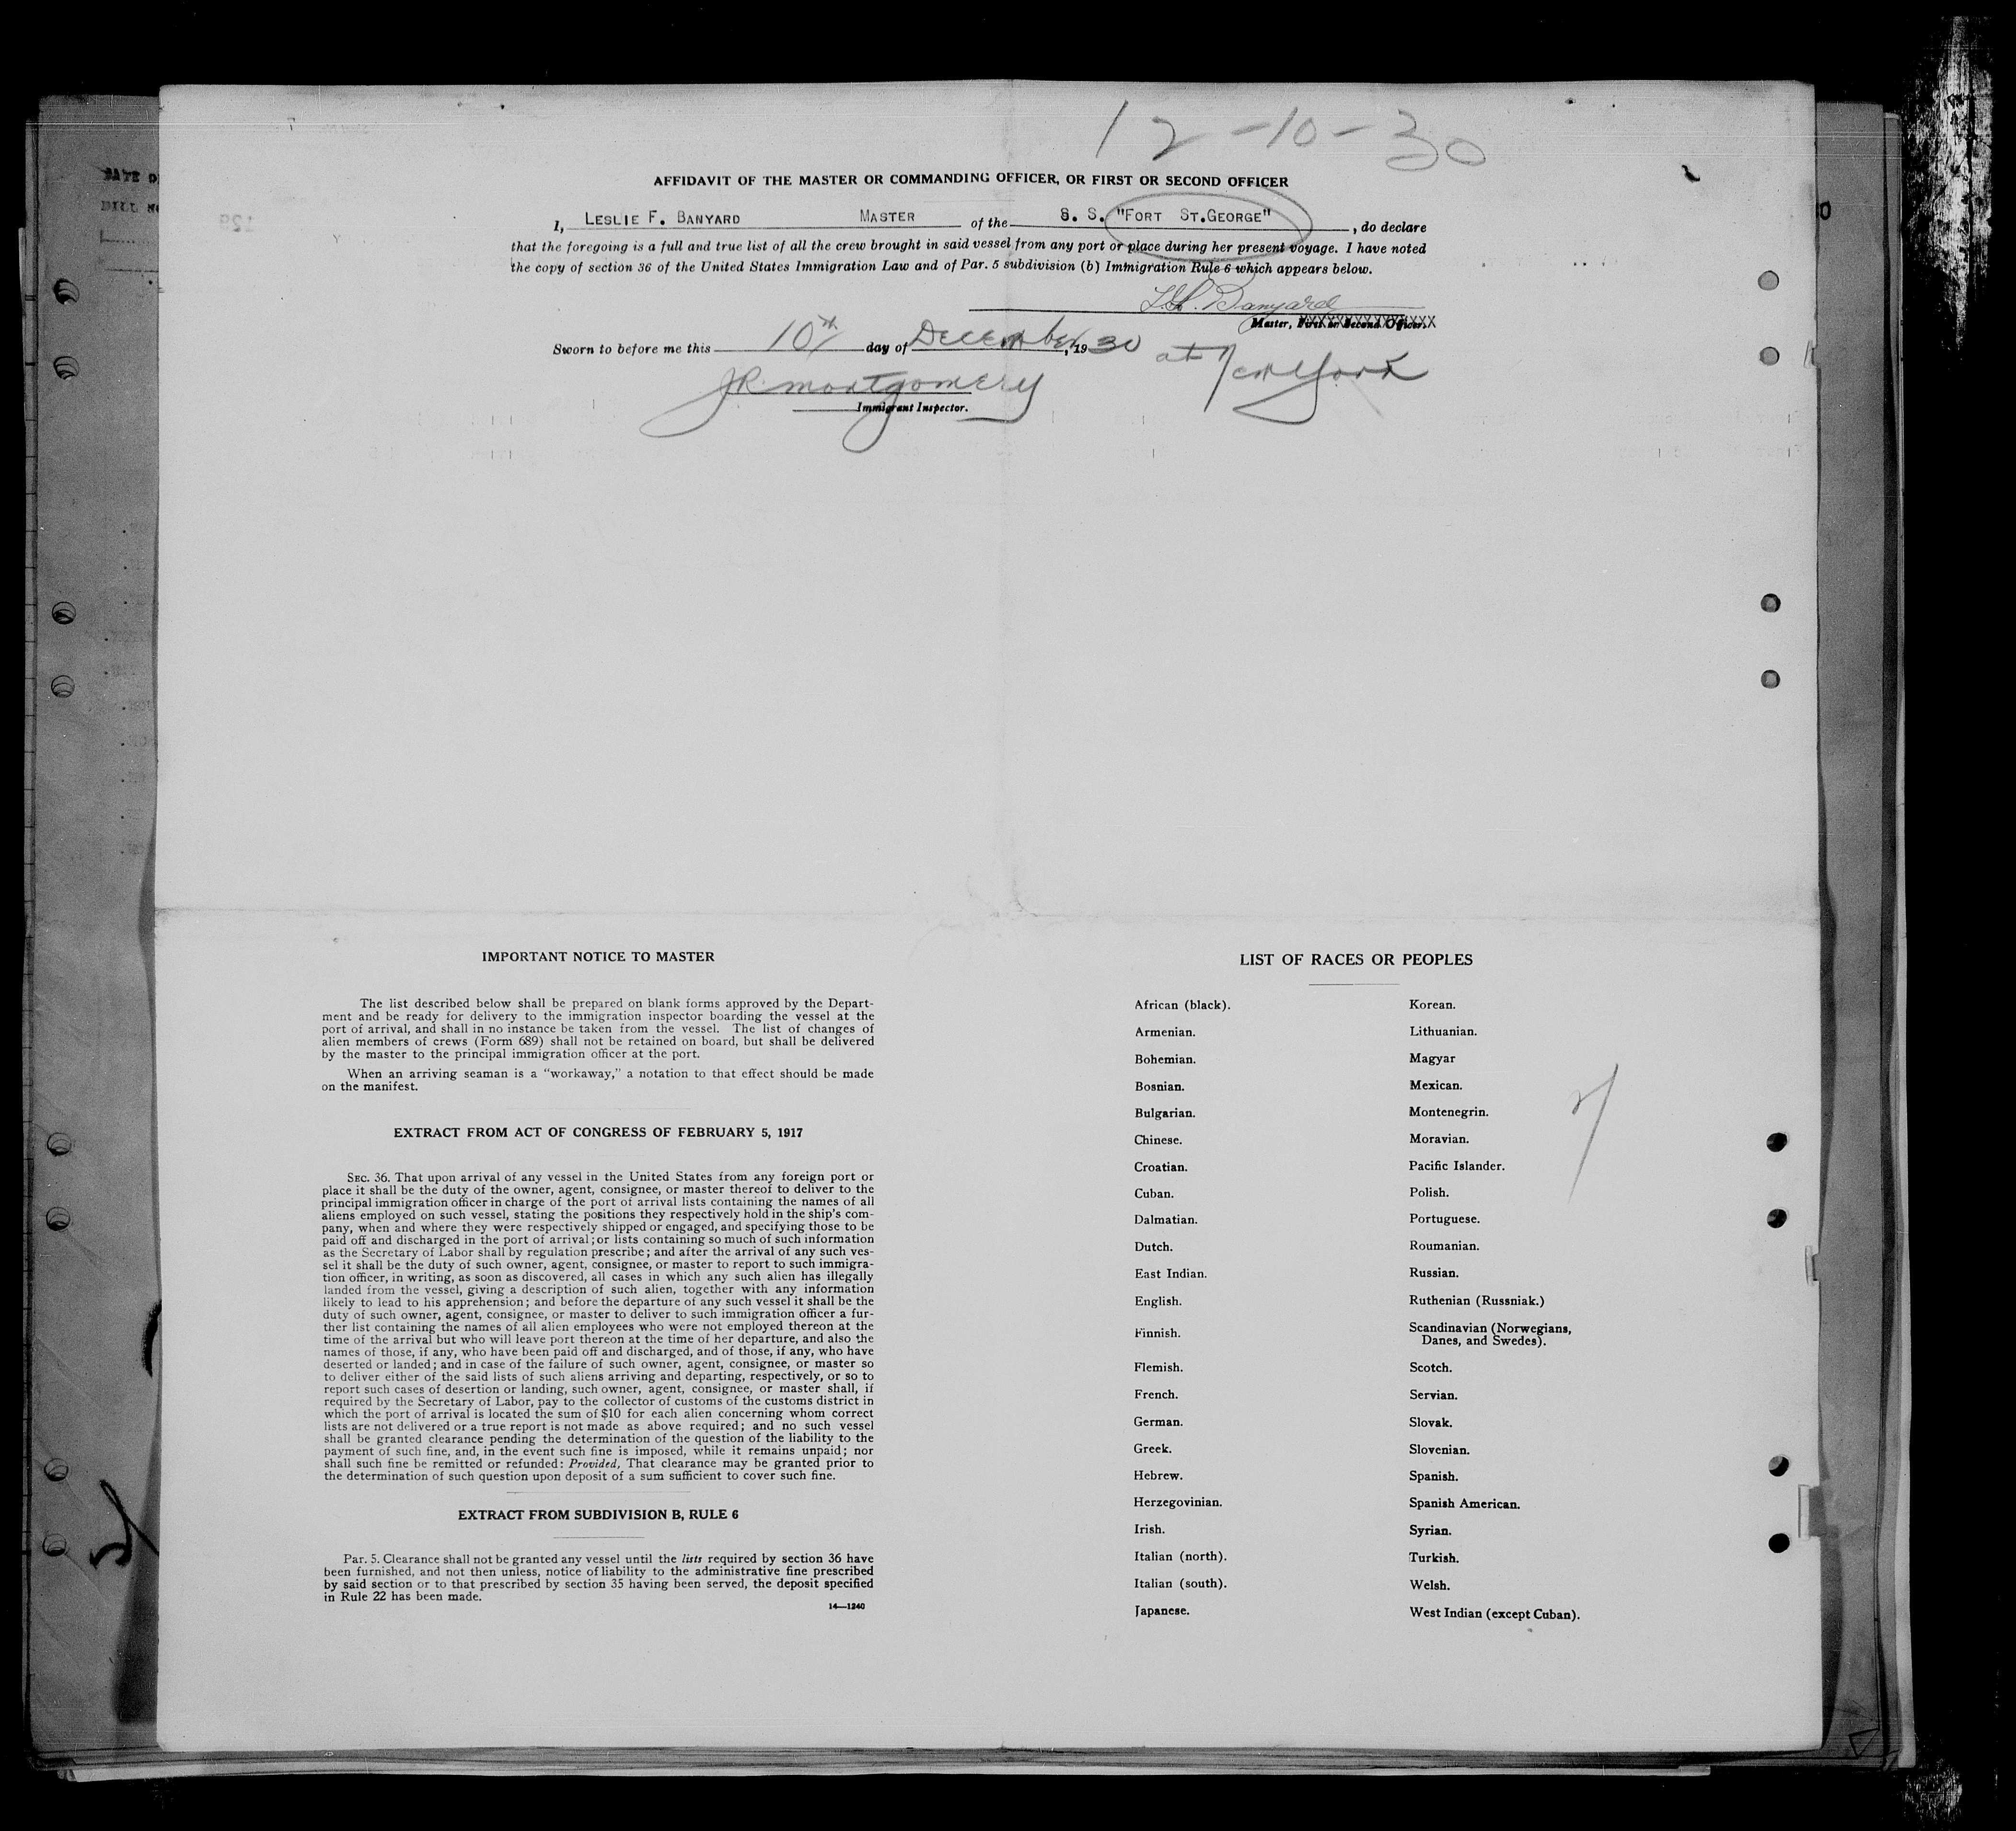 12-10-30
AFFIDAVIT OF THE MASTER OR COMMANDING OFFICER, OR FIRST OR SECOND OFFICER
I, LESLIE F. BANYARD MASTER of the S. S. "FORT ST.GEORGE", do declare
that the foregoing is a full and true list of all the crew brought in said vessel from any port or place during her present voyage. I have noted
the copy of section 36 of the United States Immigration Law and of Par. 5 subdivision (b) Immigration Rule 6 which appears below.
Banyard
Master, First or Second Officer.
Sworn to before me this 10th day of December, 1930 at New York
JR Montgomery
Immigrant Inspector.
IMPORTANT NOTICE TO MASTER
The list described below shall be prepared on blank forms approved by the Depart-
ment and be ready for delivery to the immigration inspector boarding the vessel at the
port of arrival, and shall in no instance be taken from the vessel. The list of changes of
alien members of crews (Form 689) shall not be retained on board, but shall be delivered
by the master to the principal immigration officer at the port.
When an arriving seaman is a "workaway," a notation to that effect should be made
on the manifest.
EXTRACT FROM ACT OF CONGRESS OF FEBRUARY 5, 1917
SEC. 36. That upon arrival of any vessel in the United States from any foreign port or
place it shall be the duty of the owner, agent, consignee, or master thereof to deliver to the
principal immigration officer in charge of the port of arrival lists containing the names of all
aliens employed on such vessel, stating the positions they respectively hold in the ship's com-
pany, when and where they were respectively shipped or engaged, and specifying those to be
paid off and discharged in the port of arrival; or lists containing so much of such information
as the Secretary of Labor shall by regulation prescribe; and after the arrival of any such ves-
sel it shall be the duty of such owner, agent, consignee, or master to report to such immigra-
tion officer, in writing, as soon as discovered, all cases in which any such alien has illegally
landed from the vessel, giving a description of such alien, together with any information
likely to lead to his apprehension; and before the departure of any such vessel it shall be the
duty of such owner, agent, consignee, or master to deliver to such immigration officer a fur-
ther list containing the names of all alien employees who were not employed thereon at the
time of the arrival but who will leave port thereon at the time of her departure, and also the
names of those, if any, who have been paid off and discharged, and of those, if any, who have
deserted or landed; and in case of the failure of such owner, agent, consignee, or master so
to deliver either of the said lists of such aliens arriving and departing, respectively, or so to
report such cases of desertion or landing, such owner, agent, consignee, or master shall, if
required by the Secretary of Labor, pay to the collector of customs of the customs district in
which the port of arrival is located the sum of $10 for each alien concerning whom correct
lists are not delivered or a true report is not made as above required; and no such vessel
shall be granted clearance pending the determination of the question of the liability to the
payment of such fine, and, in the event such fine is imposed, while it remains unpaid; nor
shall such fine be remitted or refunded: Provided, That clearance may be granted prior to
the determination of such question upon deposit of a sum sufficient to cover such fine.
EXTRACT FROM SUBDIVISION B, RULE 6
Par. 5. Clearance shall not be granted any vessel until the lists required by section 36 have
been furnished, and not then unless, notice of liability to the administrative fine prescribed
by said section or to that prescribed by section 35 having been served, the deposit specified
in Rule 22 has been made.
14—1240
LIST OF RACES OR PEOPLES
African (black).
Armenian.
Bohemian.
Bosnian.
Bulgarian.
Chinese.
Croatian.
Cuban.
Dalmatian.
Dutch.
East Indian.
English.
Finnish.
Flemish.
French.
German.
Greek.
Hebrew.
Herzegovinian.
Irish.
Italian (north).
Italian (south).
Japanese.
Korean.
Lithuanian.
Magyar
Mexican.
Montenegrin.
Moravian.
Pacific Islander.
Polish.
Portuguese.
Roumanian.
Russian.
Ruthenian (Russniak.)
Scandinavian (Norwegians,
Danes, and Swedes).
Scotch.
Servian.
Slovak.
Slovenian.
Spanish.
Spanish American.
Syrian.
Turkish.
Welsh.
West Indian (except Cuban).